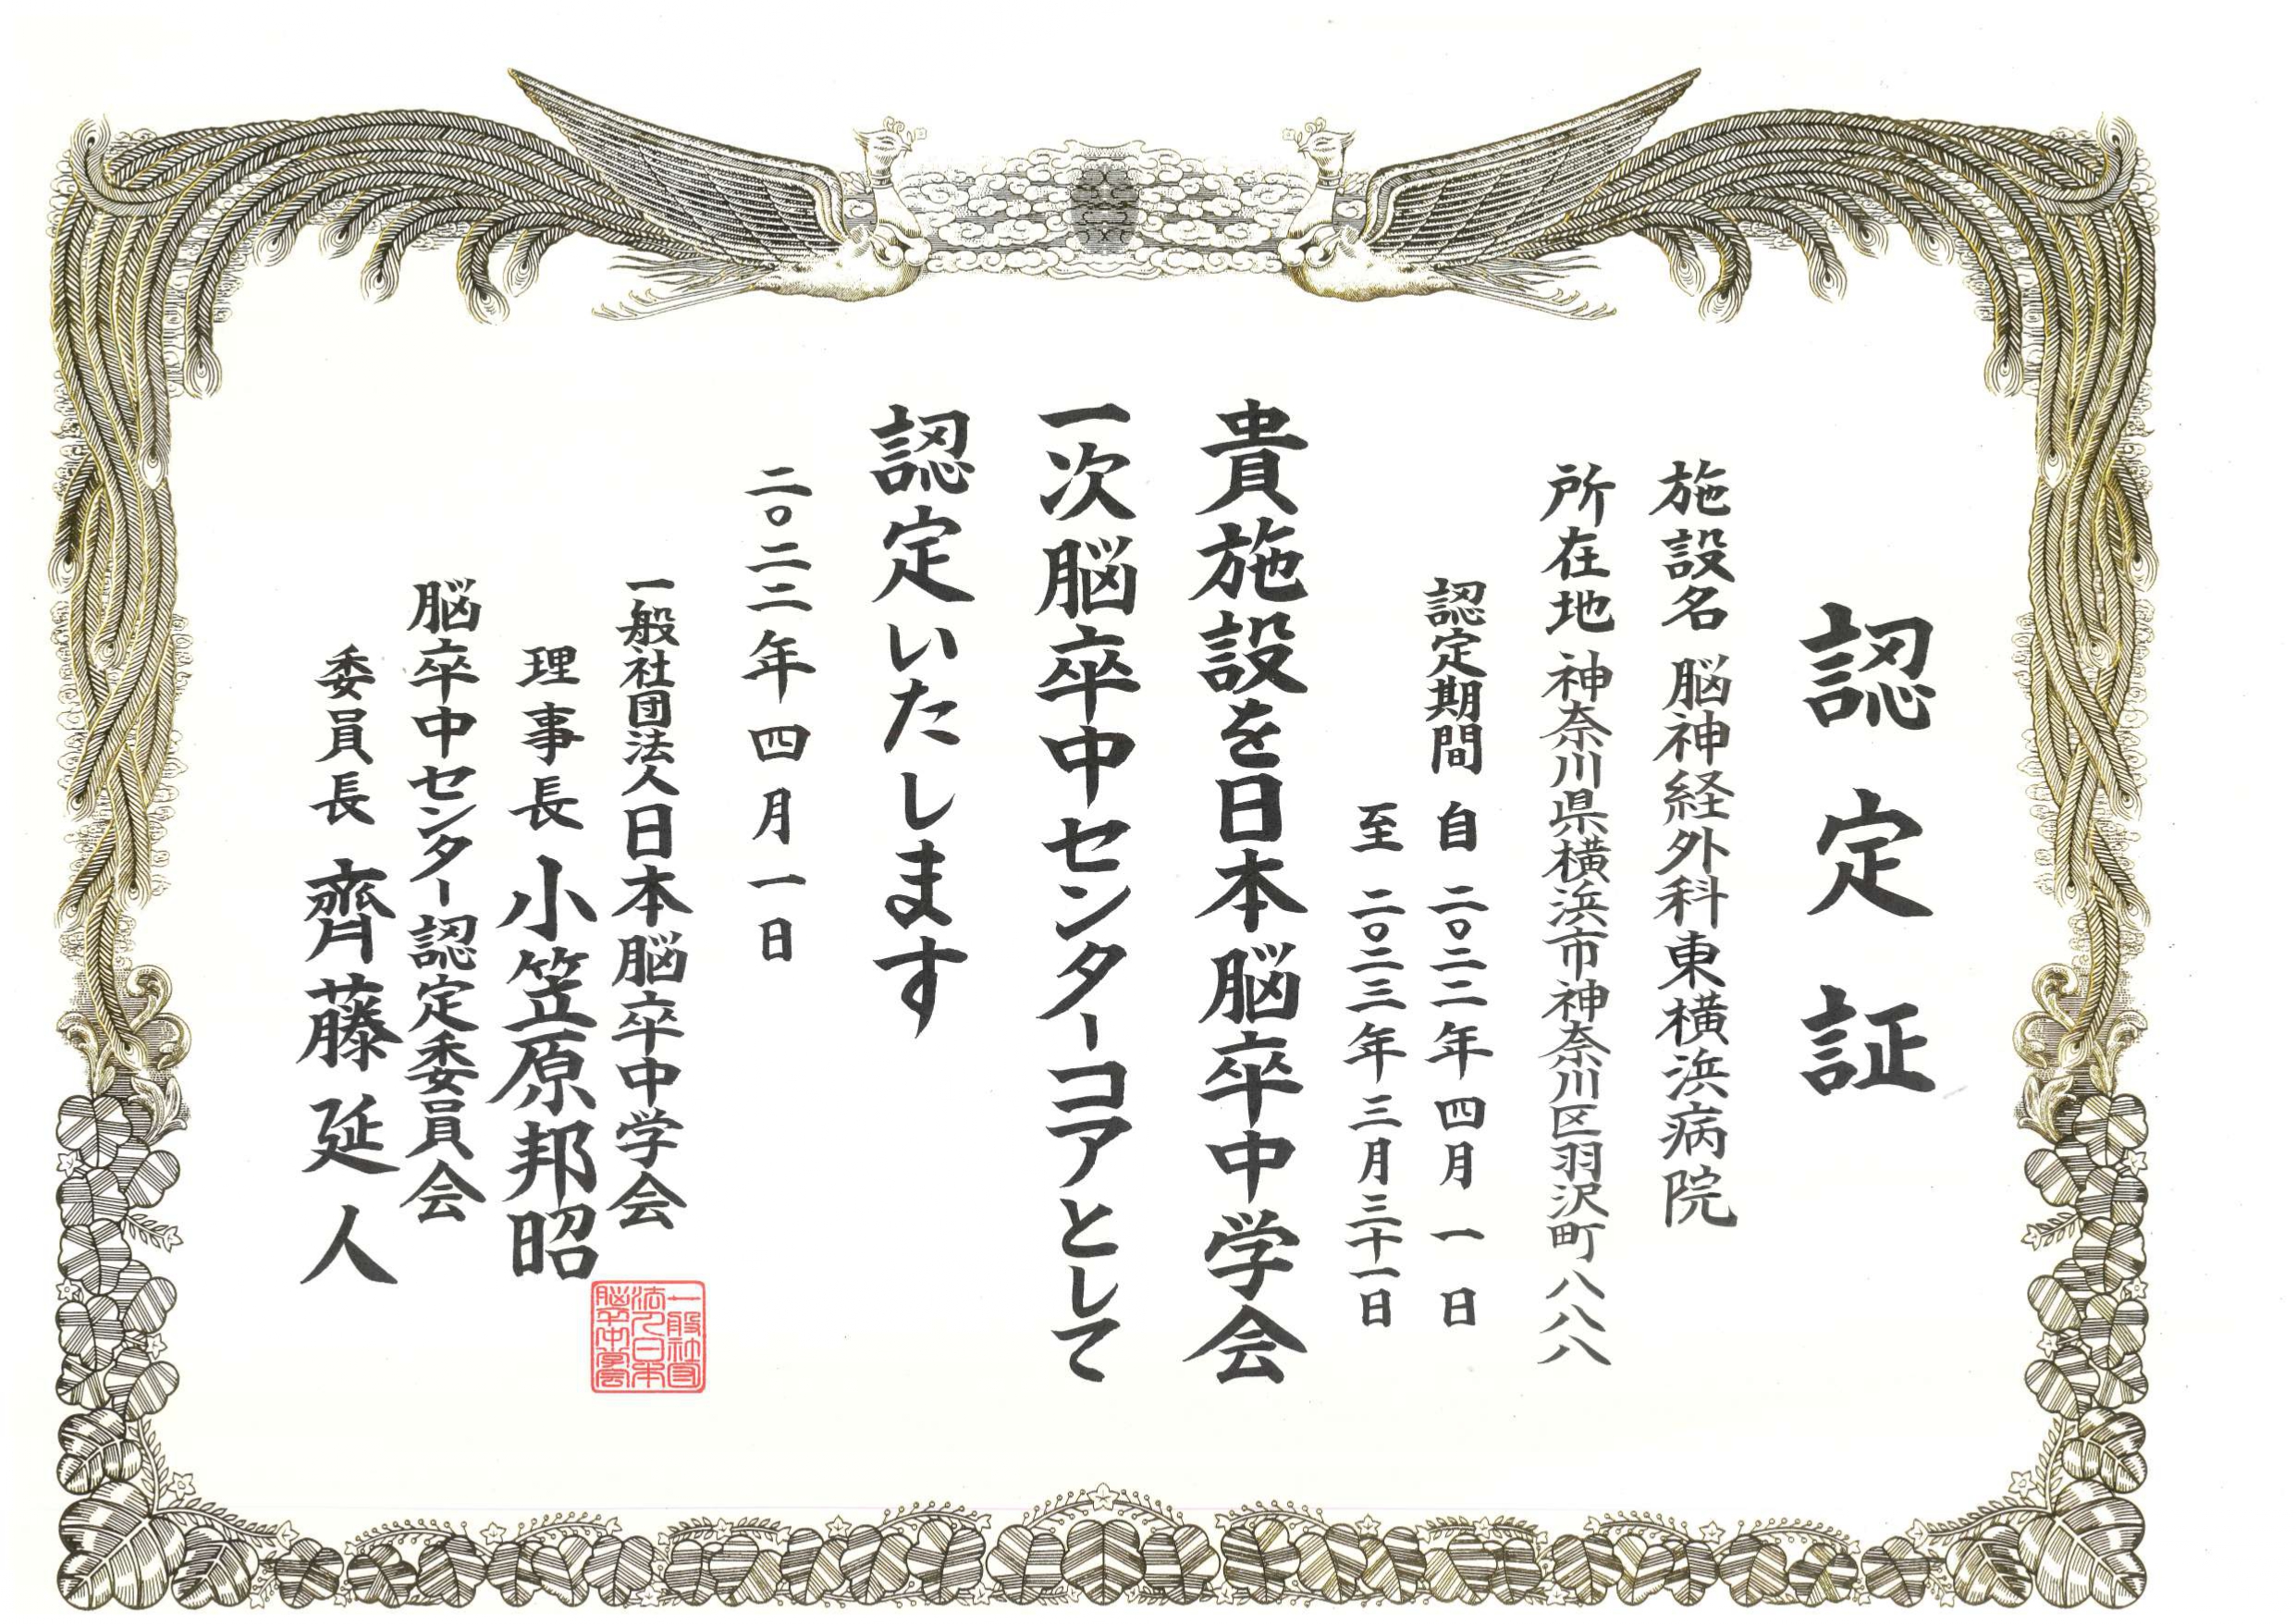 認定証
施設名 脳神経外科東横浜病院
所在地 神奈川県横浜市神奈川区羽沢町八八八
認定期間 自 二〇二二年 四月 一日
至 二〇二三年 三月三十一日
貴施設を日本脳卒中学会
一次脳卒中センターコアとして
認定いたします
二〇二二年 四月 一日
一般社団法人日本脳卒中学会
理事長 小笠原邦昭
脳卒中センター認定委員会
委員長 齊藤延人
一般社団
法人日本
脳卒中学会